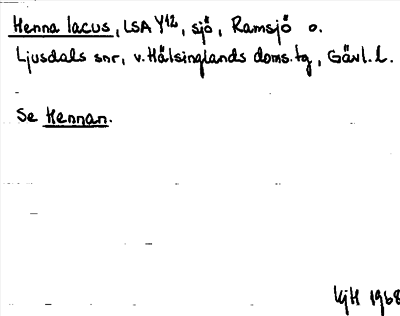 Henna lacus, LSA Y12, sjö, Ramsjö o.
Ljusdals snr, v. Hälsinglands doms.tg, Gävl.l.
Se Hennan.
KjH 1968